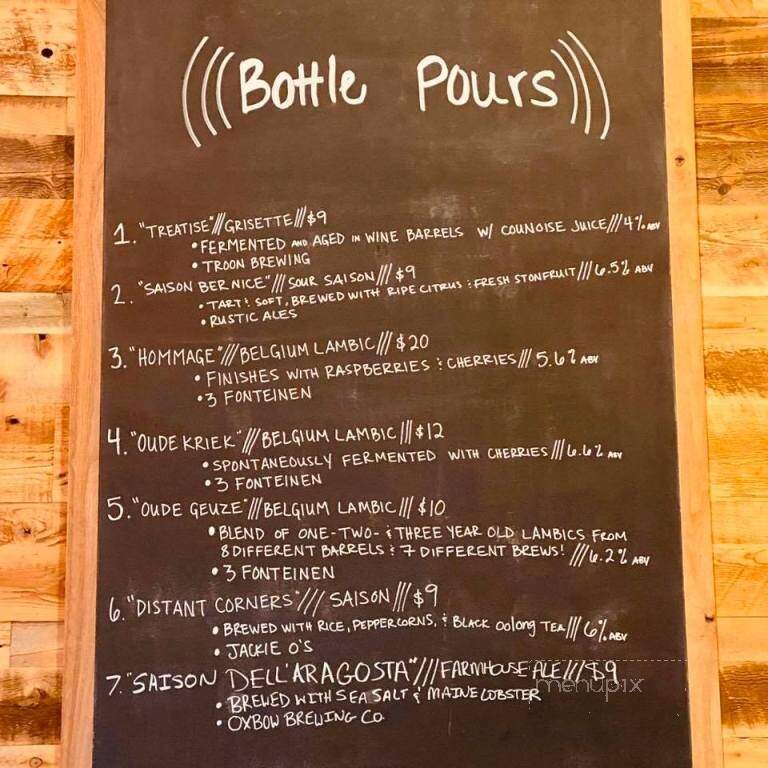 (((Bottle Pours)))
1. "TREATISE"///GRISETTE///$9
• FERMENTED AND AGED IN WINE BARRELS W/ COUNOISE JUICE///4% ABV
• TROON BREWING
2. "SAISON BERNICE"///SOUR SAISON///$9
• TART & SOFT, BREWED WITH RIPE CITRUS & FRESH STONFRUIT///6.5% ABV
• RUSTIC ALES
3. "HOMMAGE"///BELGIUM LAMBIC///$20
• FINISHES WITH RASPBERRIES & CHERRIES///5.6% ABV
• 3 FONTEINEN
4. "OUDE KRIEK"///BELGIUM LAMBIC///$12
• SPONTANEOUSLY FERMENTED WITH CHERRIES///6.6% ABV
• 3 FONTEINEN
5. "OUDE GEUZE"///BELGIUM LAMBIC///$10
• BLEND OF ONE-TWO- & THREE YEAR OLD LAMBICS FROM
8 DIFFERENT BARRELS & 7 DIFFERENT BREWS! ///6.2% ABV
• 3 FONTEINEN
6. "DISTANT CORNERS"/// SAISON///$9
• BREWED WITH RICE, PEPPERCORNS, & BLACK OOLONG TEA///6% ABV
• JACKIE O'S
7. "SAISON DELL'ARAGOSTA"///FARMHOUSE ALE///$9
• BREWED WITH SEA SALT & MAINE LOBSTER
• OXBOW BREWING CO.
menupix